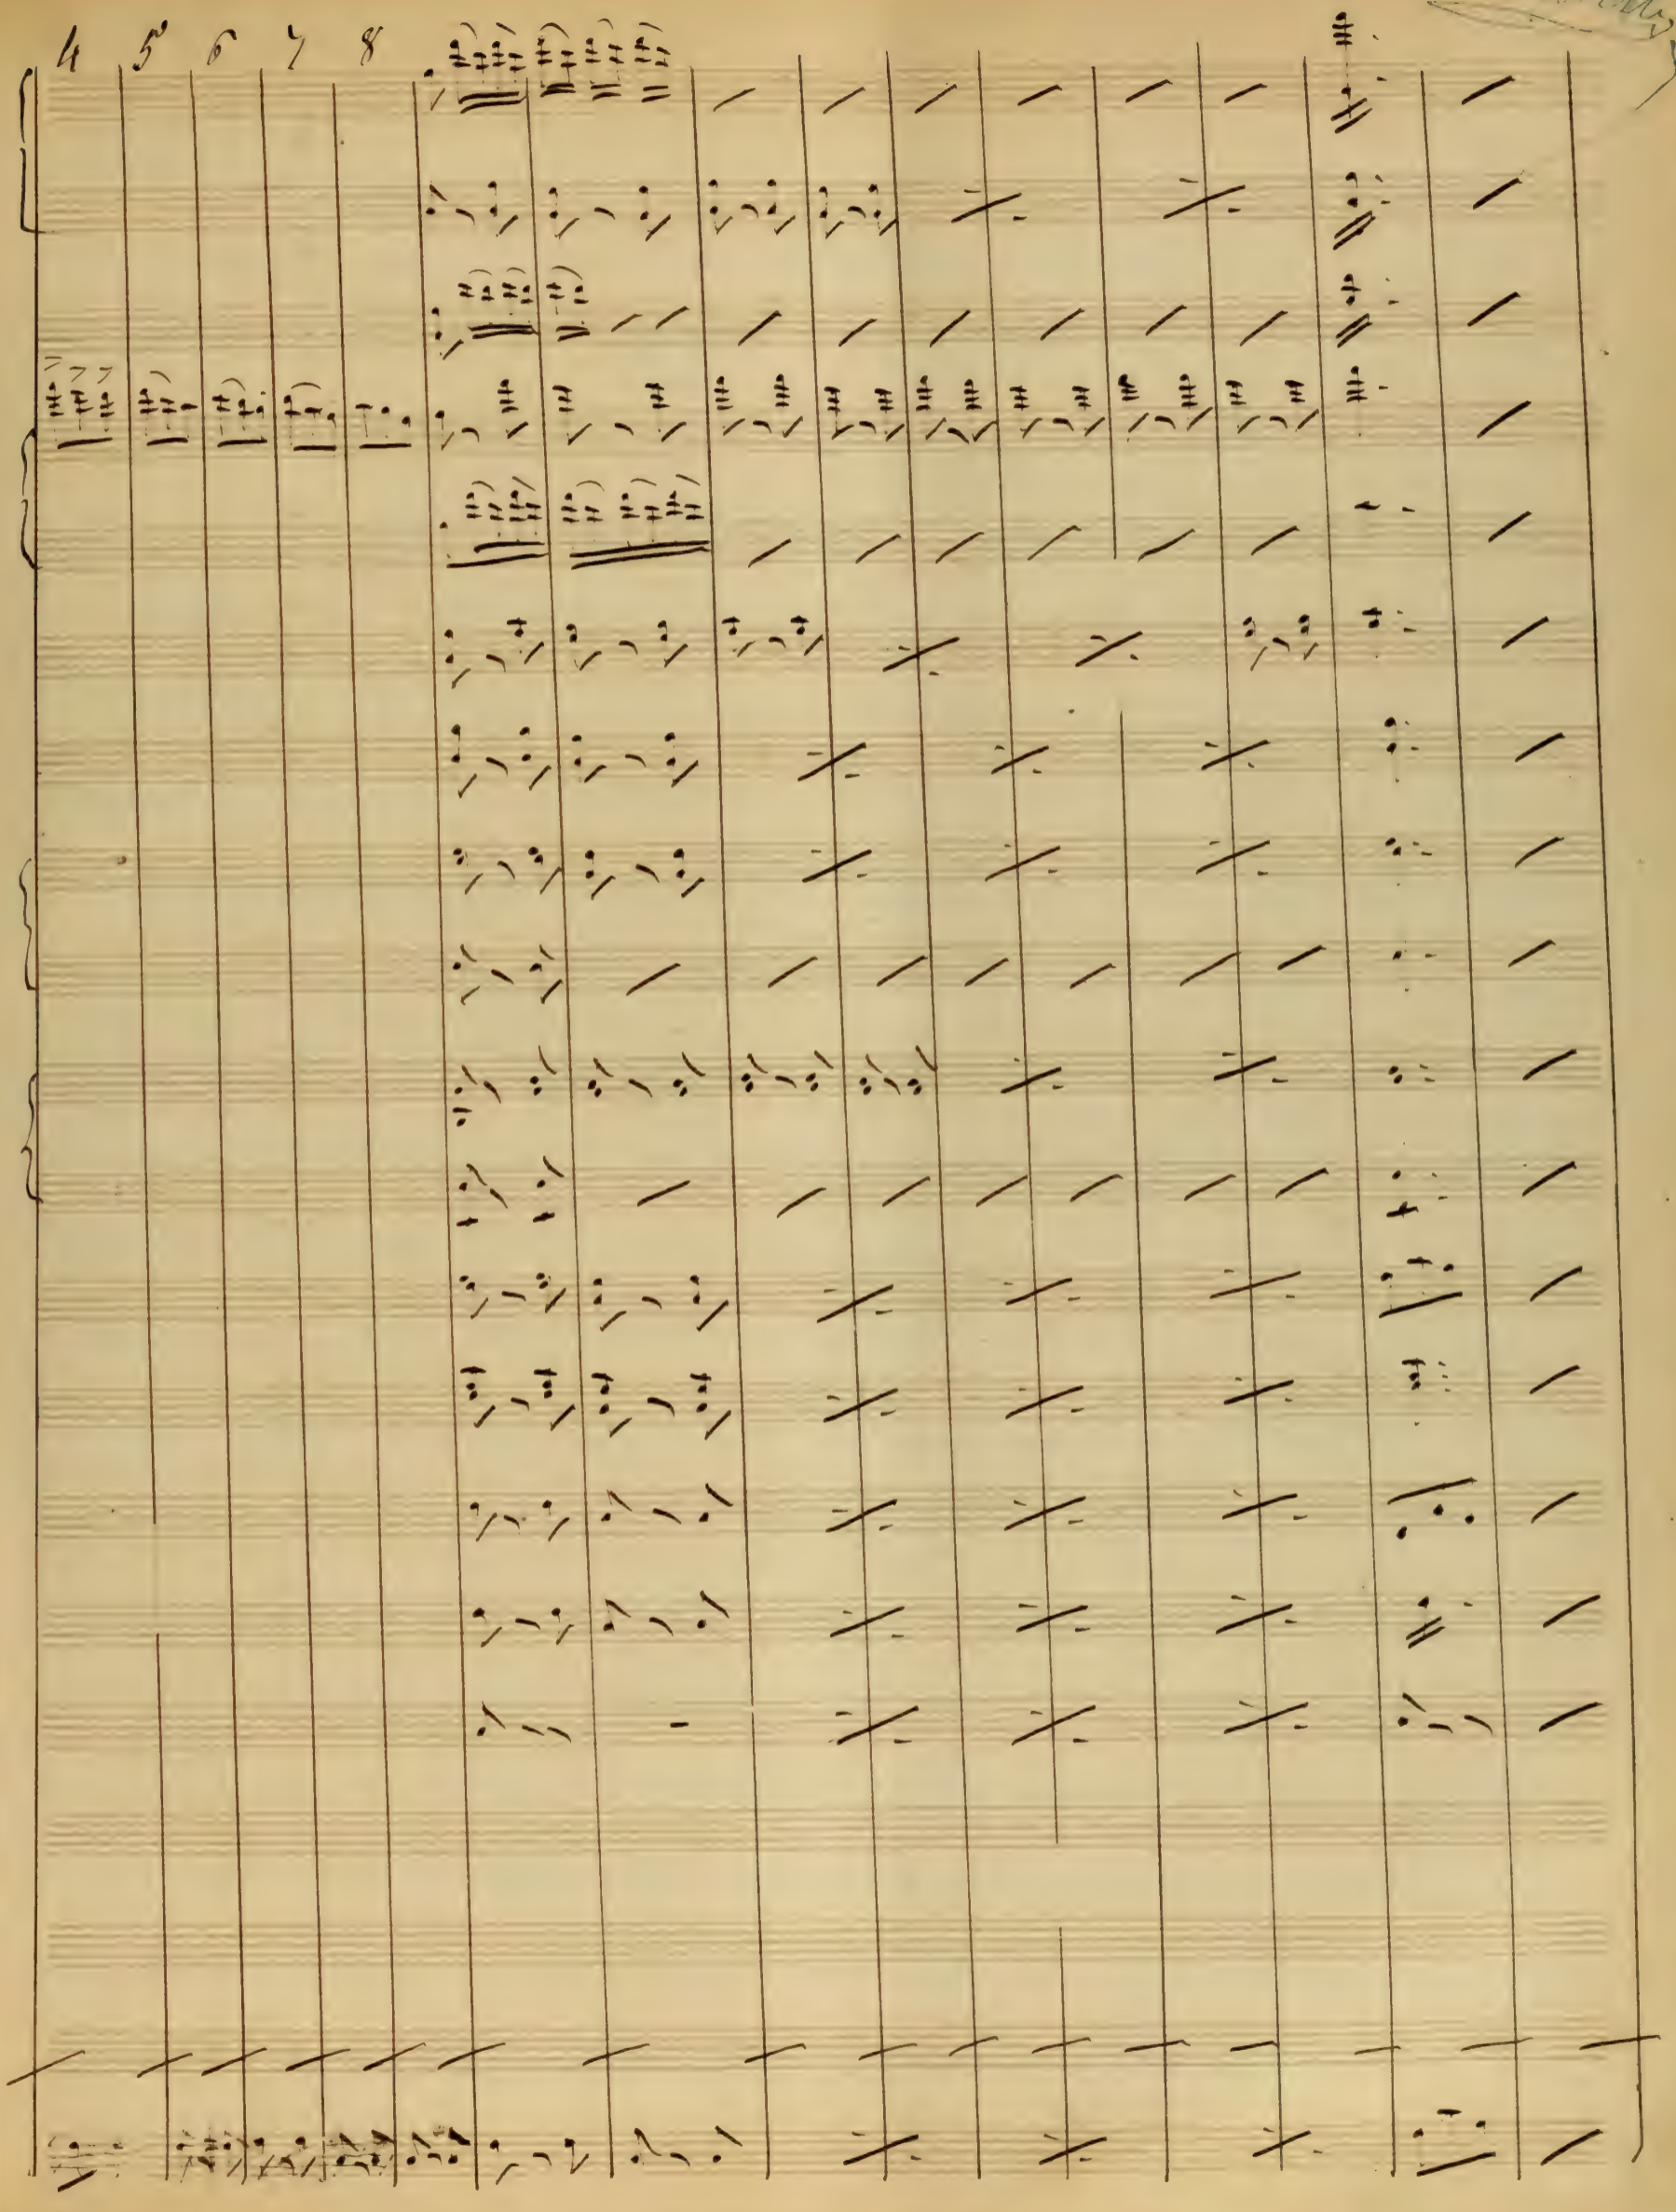 4 5 6 7 8